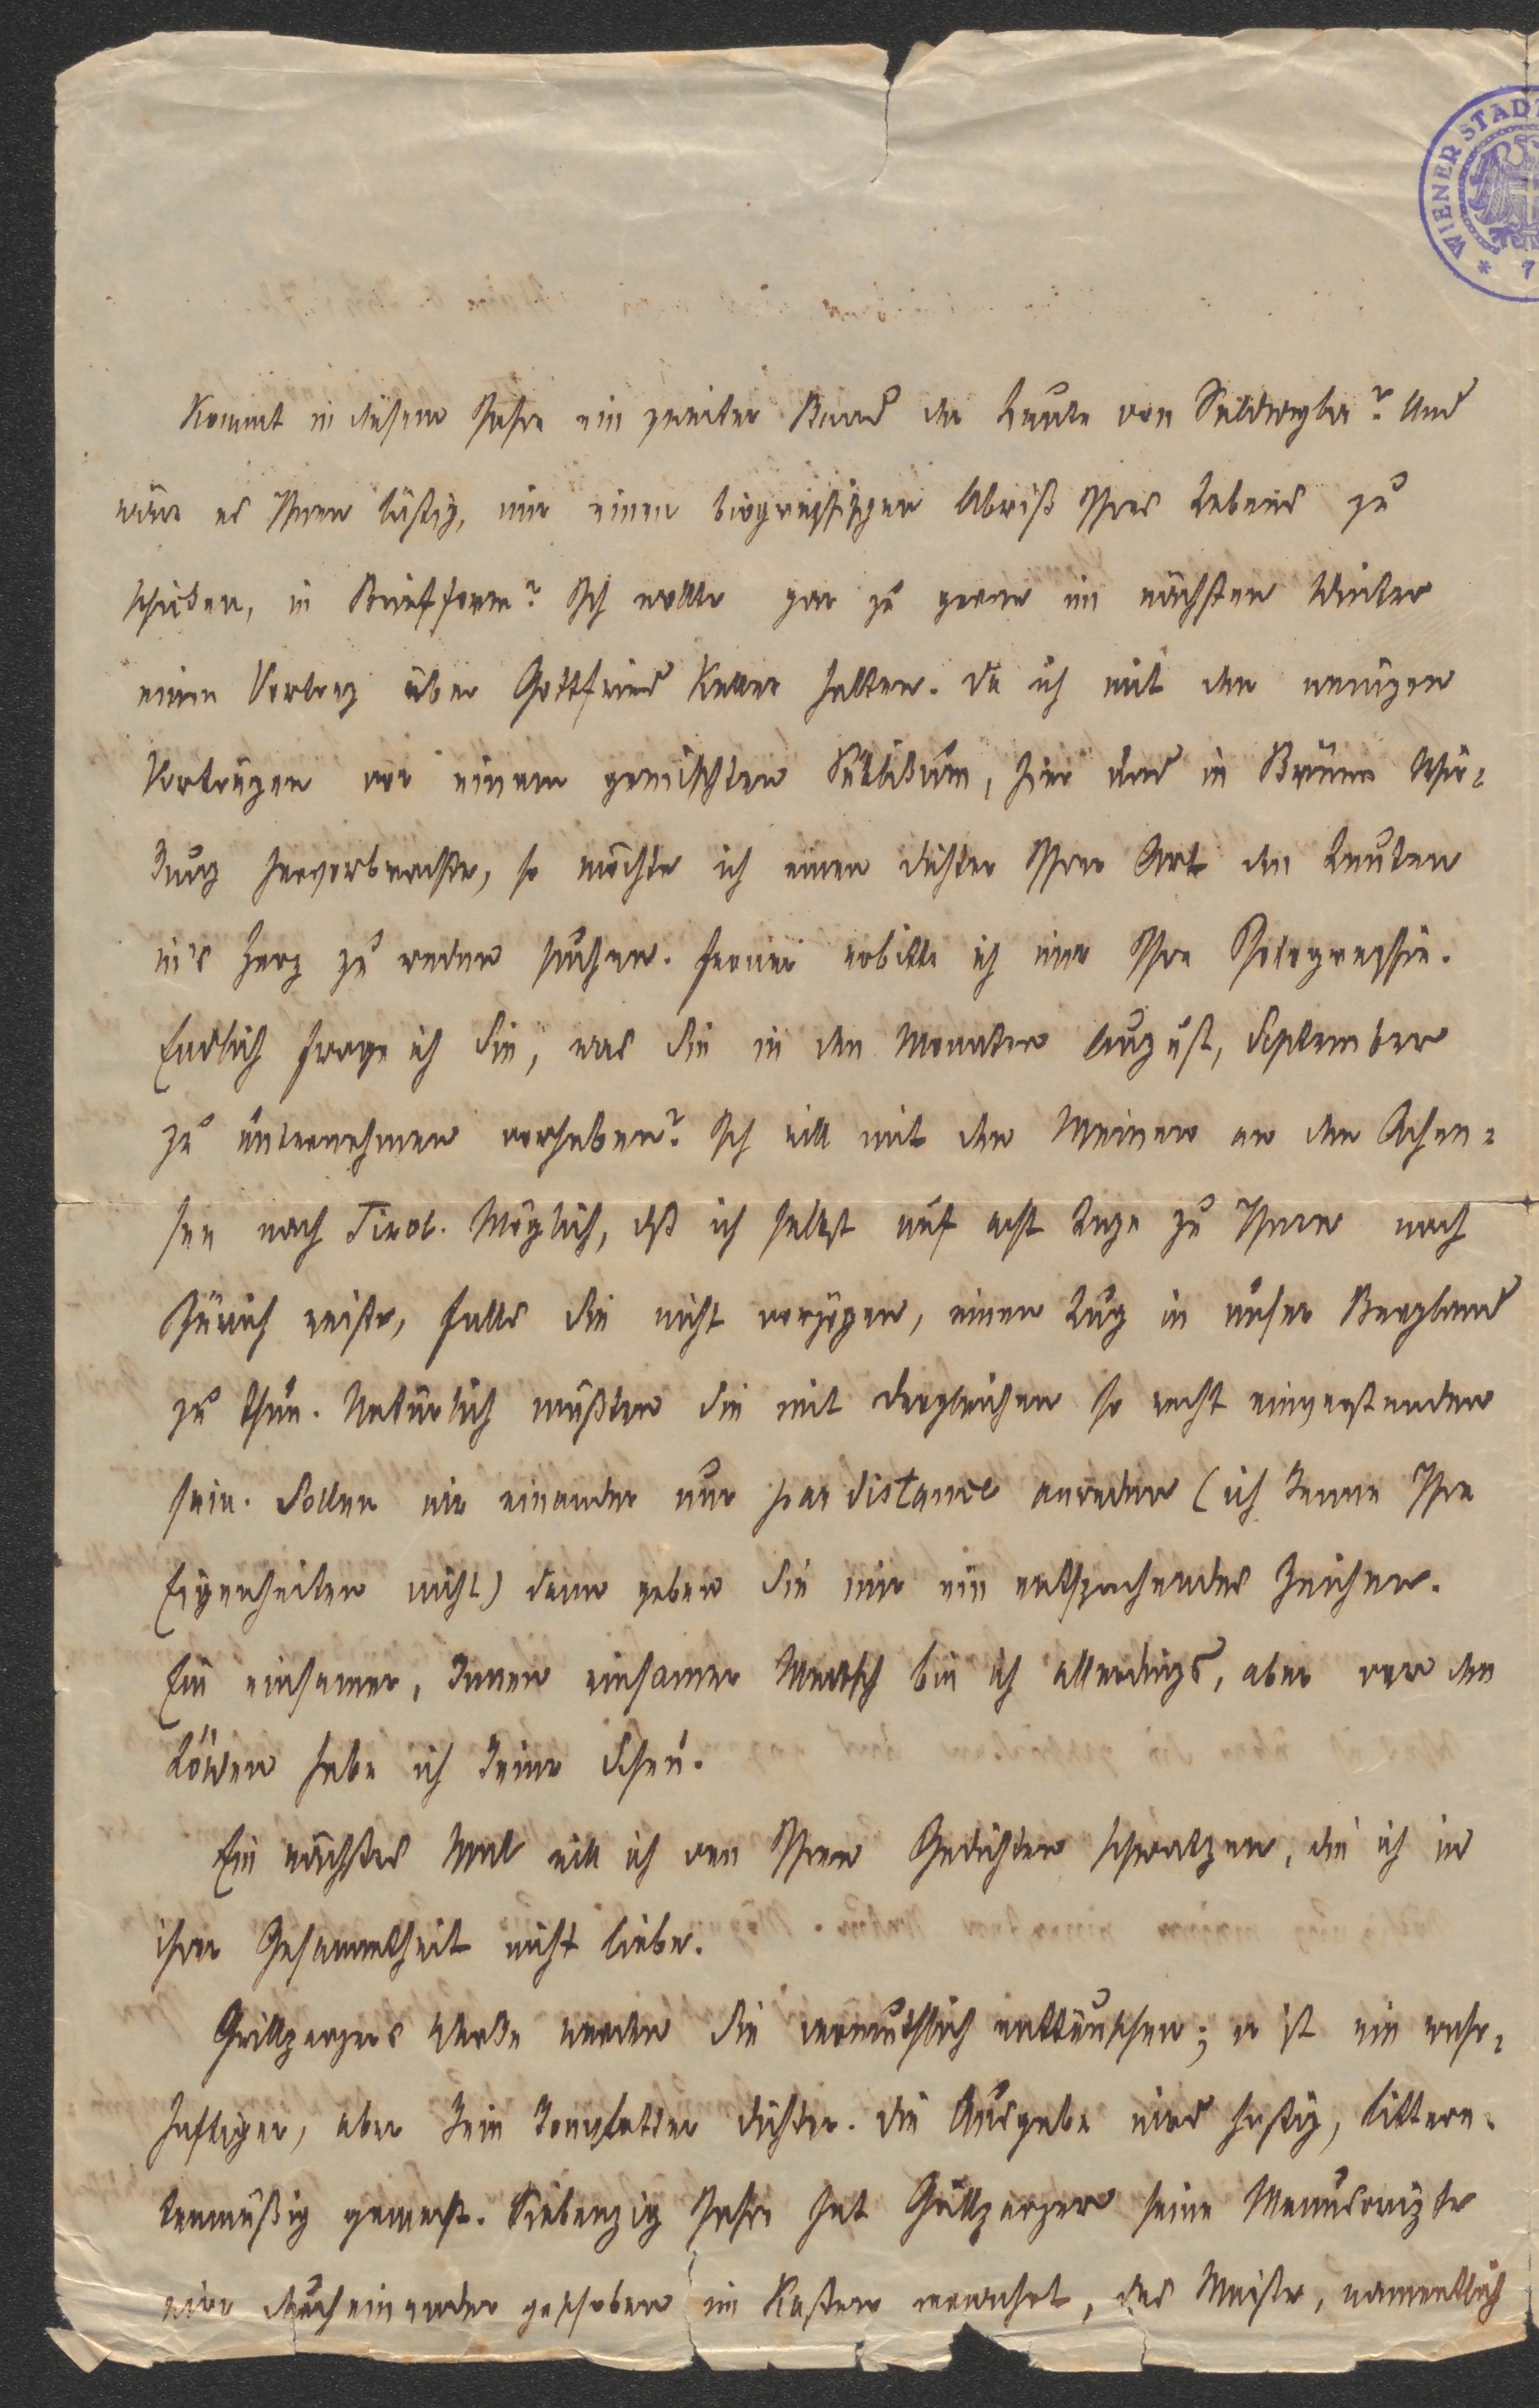 WIENER STAD
* 7
Kommt in diesem Jahre ein zweiter Band der Leute von Seldwyla? Und
wäre es Ihnen lästig, mir einen biographischen Abriß Ihres Lebens zu
schicken, in Briefform? Ich wollte gar zu gerne im nächsten Winter
einen Vortrag über Gottfried Keller halten. Da ich mit den wenigen
Vorträgen vor einem gemischten Publikum, hier und in Brünn Wir-
kung hervorbrachte, so möchte ich einen Dichter Ihrer Art den Leuten
in's Herz zu reden suchen. Ferner erbitte ich mir Ihre Fotographie.
Endlich frage ich Sie, was Sie in den Monaten August, September
zu unternehmen vorhaben? Ich will mit den Meinen an den Achen-
see nach Tirol. Möglich, daß ich selbst auf acht Tage zu Ihnen nach
Zürich reiste, falls Sie nicht vorzögen, einen Zug in unser Bergland
zu thun. Natürlich müßten Sie mit dergleichen so recht einverstanden
sein. Sollen wir einander nur par distance anreden (ich kenne Ihre
Eigenheiten nicht) dann geben Sie mir ein entsprechendes Zeichen.
Ein einsamer, innen einsamer Mensch bin ich allerdings, aber vor den
Löwen habe ich keine Scheu.
Ein nächstes Mal will ich von Ihren Gedichten schwatzen, die ich in
ihrer Gesammtheit nicht liebe.
Grillparzers Werke werden Sie vermuthlich enttäuschen; er ist ein wahr-
haftiger, aber kein kompletter Dichter. Die Ausgabe wird hastig, littera-
tenmäßig gemacht. Siebenzig Jahre hat Grillparzer seine Manuscripte
wirr durcheinander geschoben im Kasten verwahrt, das Meiste, namentlich